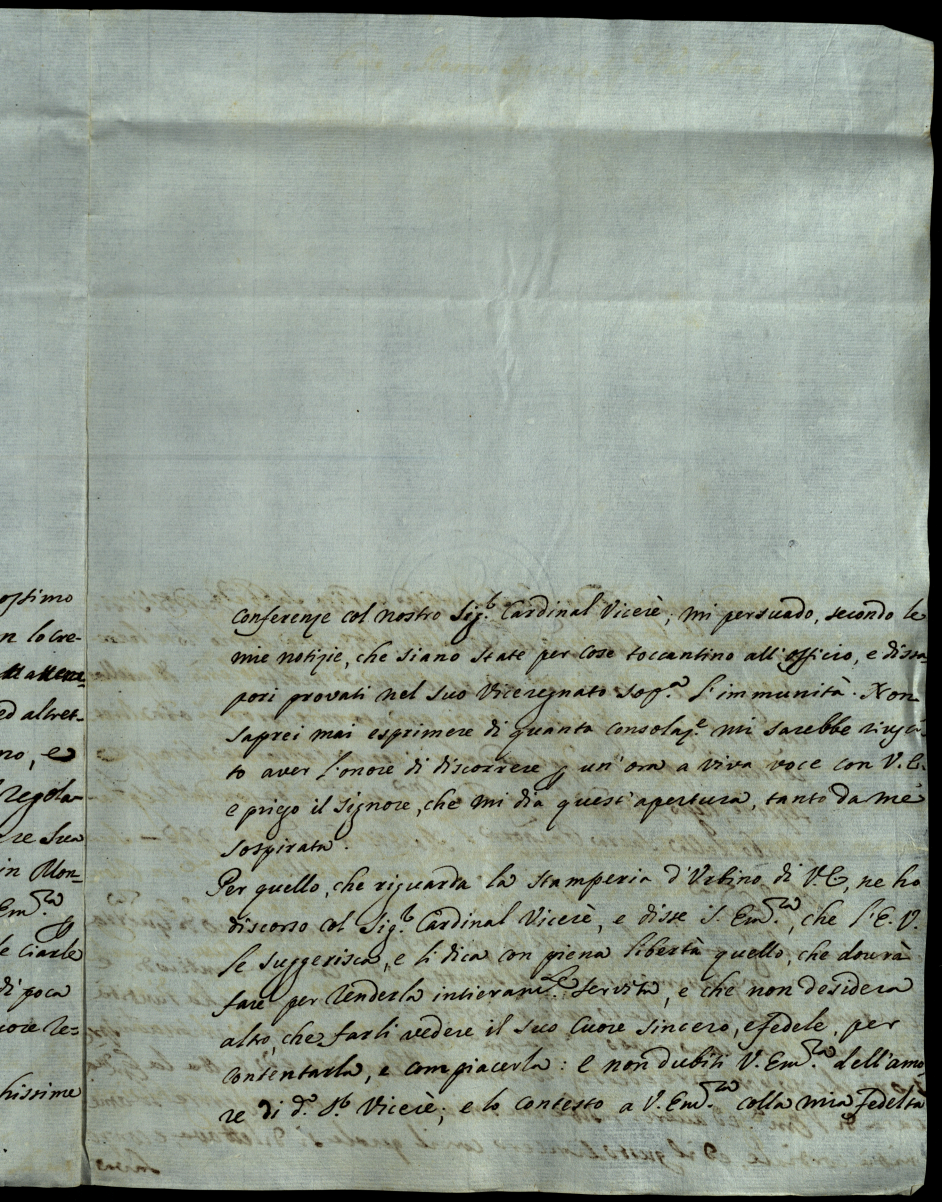 ossimo
n lo cre-
ed altret-
no, e
regola-
re sua
in Mon-
Em.za
le ciarle
di poca
uore re=
hissime
conferenze col nostro Sig.r Cardinal Vicerè; mi persuado, secondo le
mie notizie, che siano state per cose toccantino all'officio, e dissa-
pori provati nel suo Viceregnato sop.a l'immunità. Non
saprei mai esprimere di quanta consolaz.e mi sarebbe riusci-
to aver l'onore di discorrere p un'ora a viva voce con V.E.
e priego il Signore, che mi dia quest'apertura, tanto da me
sospirata.
Per quello, che riguarda la stamperia d'Urbino di V.E, ne ho
discorso col Sig.r Cardinal Vicerè, e disse S. Em.za, che l'E.V.
le suggerisca, e li dica con piena libertà quello, che dovrà
fare per renderla intieram.te servita, e che non desidera
altro, che farli vedere il suo Cuore sincero, e fedele, per
contentarla, e compiacerla: E non dubiti V. Em.za dell'amo
re di d.o S.r Vicerè; e lo contesto a V. Em.za colla mia fedeltà